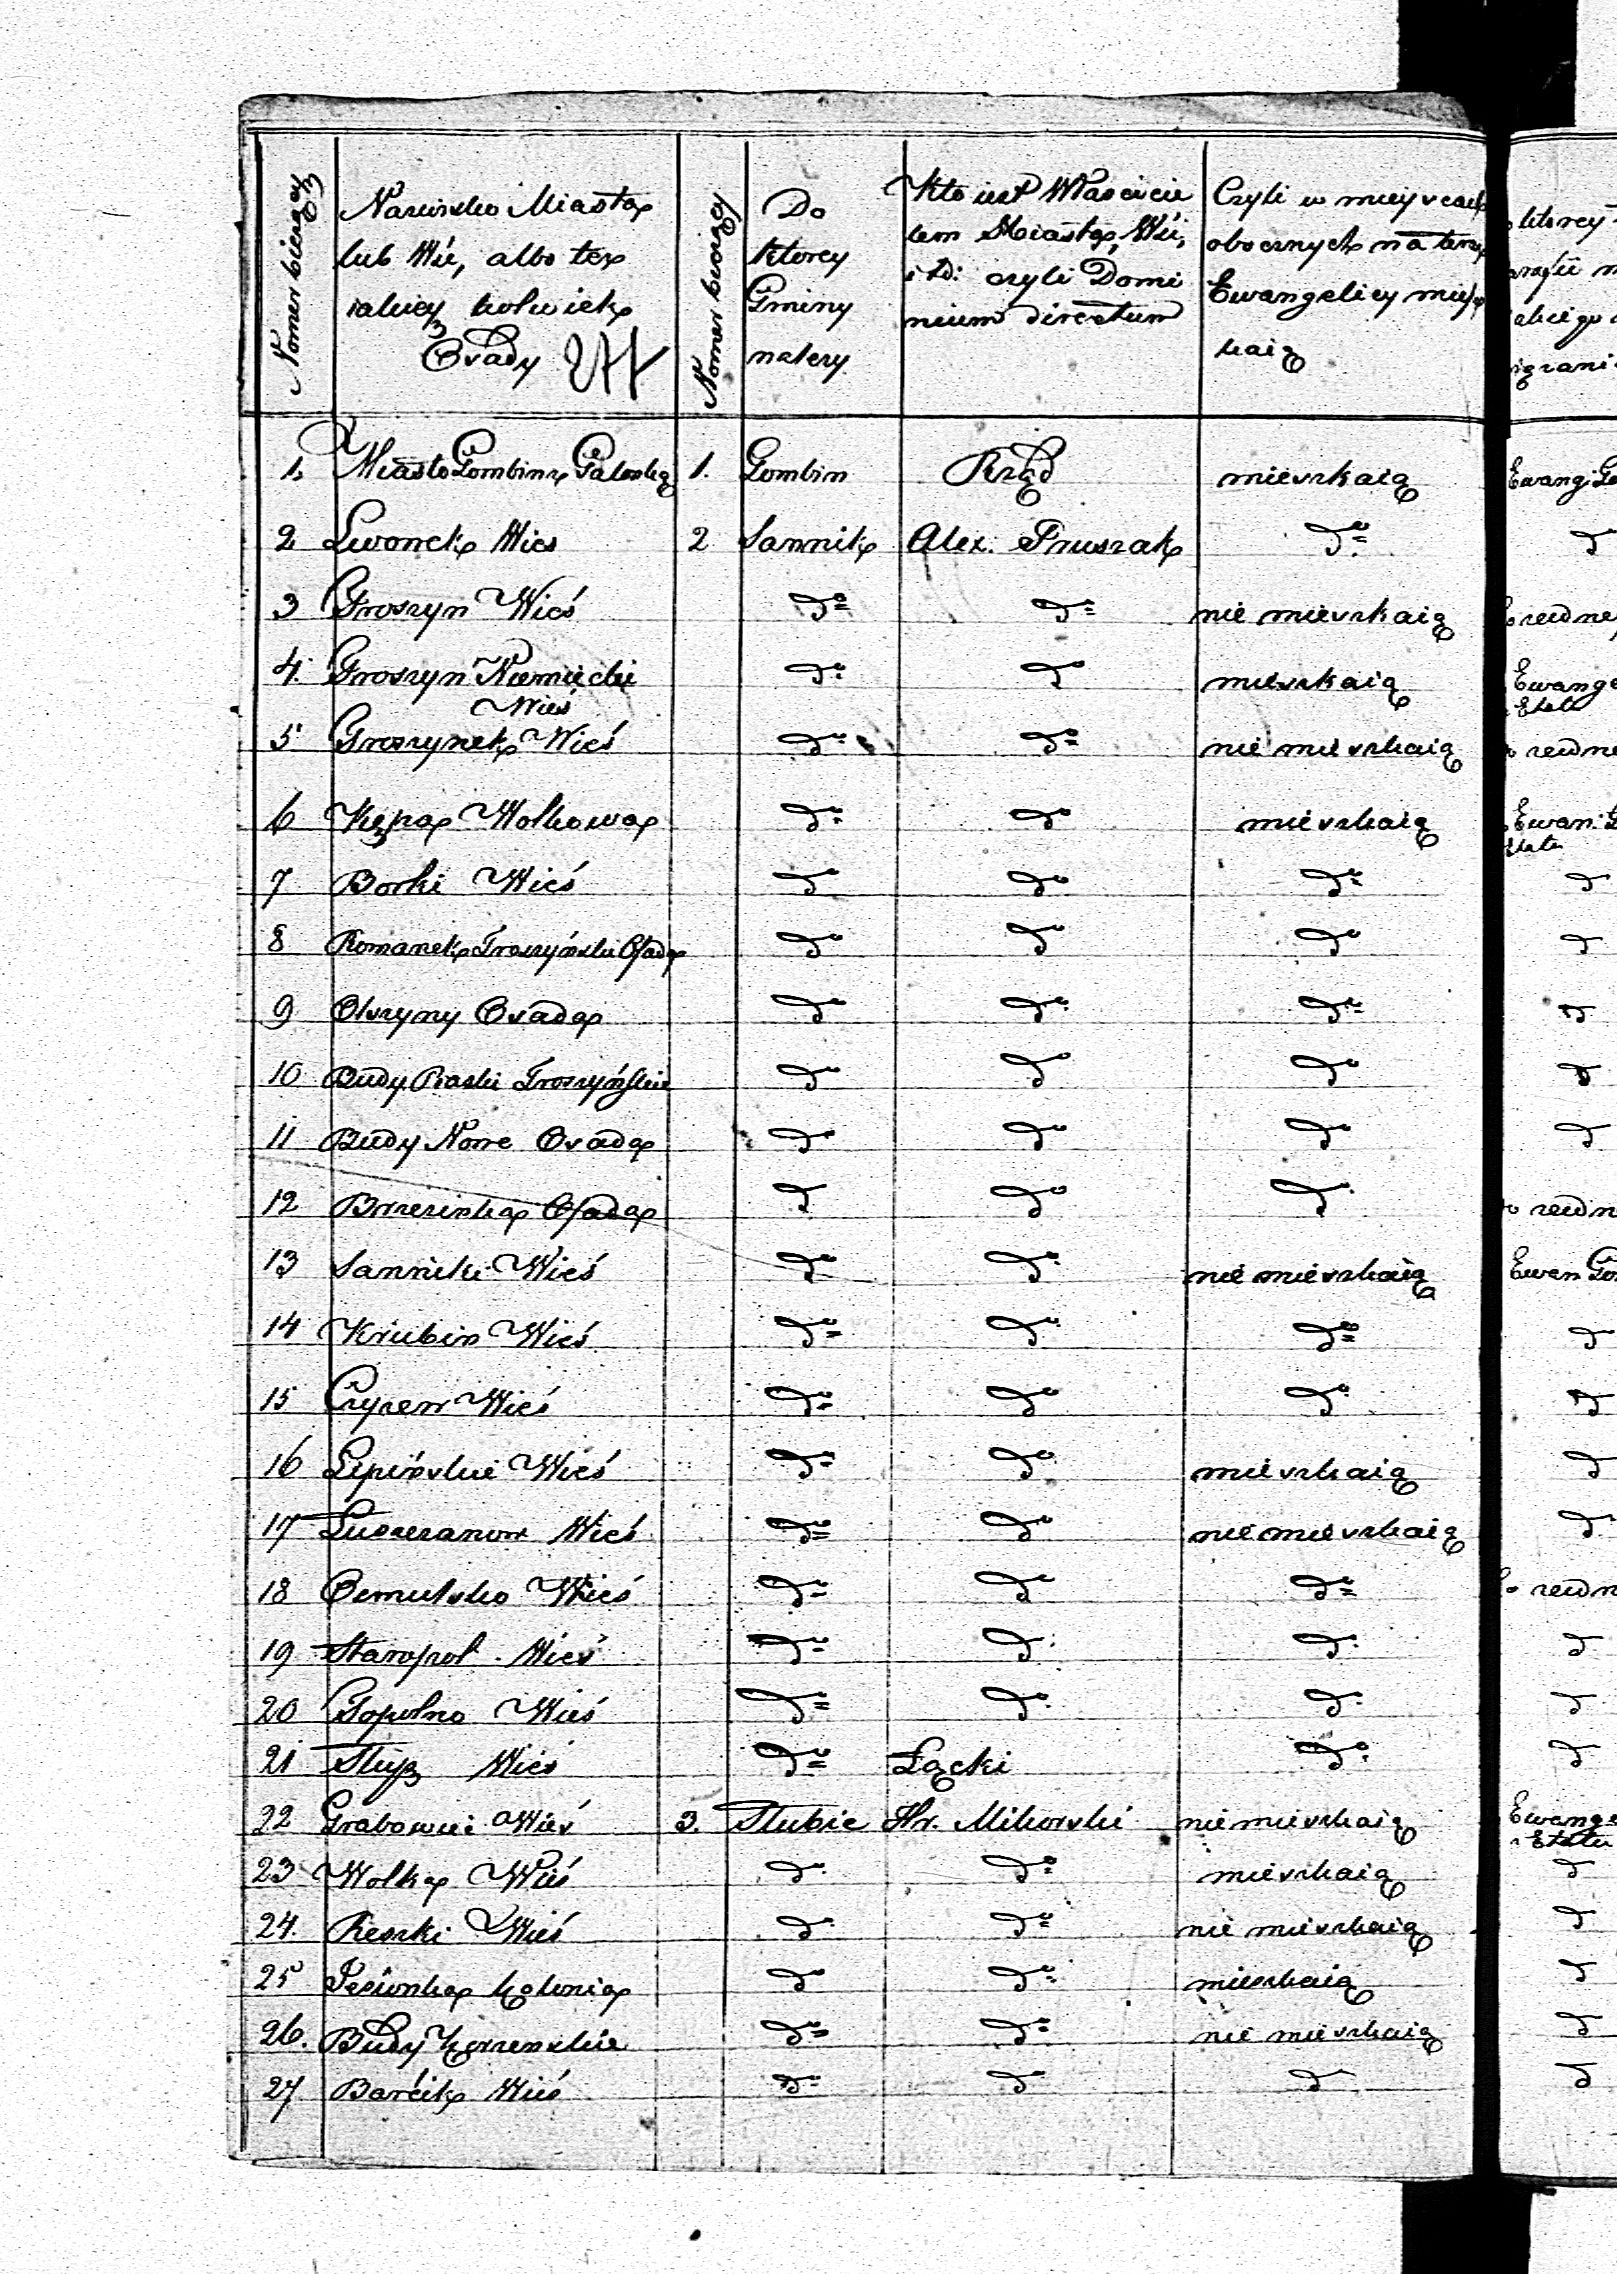 Numer bieżący
Nazwisko Miasta
lub Wsi, albo też
iakiey kolwiek
Osady
Numer bieżący
Do
ktorey
Gminy
należy
Kto iest Właścicie
lem Miasta, Wsi,
i t.d: czyli Domi
nium directum
Czyli w mieyscach
obocznych na teraz
Ewangelicy miesz
kaią
1. Miasto Gombin 1. Gombin Rząd mieszkaią
2 Lwonek Wies 2 Sannik Alex. Pruszak do
3 Troszyn Wieś do do nie mieszkaią
4. Troszyn Niemiecki do do mieszkaią
Wieś
5. Troszynek Wieś do do nie mieszkaią
6 Kępa Wolkowa do do mieszkaią
7 Borki Wieś do do do
8 Romanek Troszyński Osada do do do
9 Olszyny Osada do do do
10 Budy Piaski Troszyńskie do do do
11 Budy Nowe Osada do do do
12 Brzezinka Osada do do do
13 Sanniki Wieś do do nie mieszkaią
14 Krubin Wieś do do do
15 Czyzew Wieś do do do
16 Lipińskie Wieś do do mieszkaią
17 Luszczanow Wieś do do nie mieszkaią
18 Osmulsko Wieś do do do
19 Staropol Wieś do do do
20 Topolno Wieś do do do
21 Słup Wieś do Łącki do
22 Grabowiec Wieś 3. Słubice Hr. Mikorski nie mieszkaią
23 Wolka Wieś do do mieszkaią
24. Reszki Wieś do do nie mieszkaią
25 Jesionka Kolonia do do mieszkaią
26. Budy Korzenskie do do nie mieszkaią
27 Barcik Wieś do do do